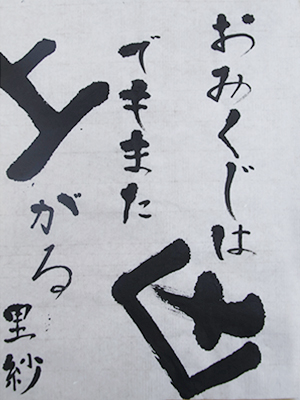 おみくじは凶
でもまた
上がる
里紗